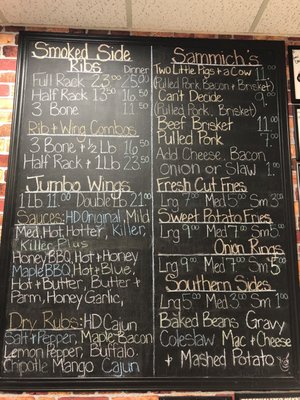 Smoked Side
Ribs Dinner
Full Rack 23.00 25.00
Half Rack 13.50 16.50
3 Bone 11.50
Rib + Wing Combos
3 Bone + ½ Lb 16.50
Half Rack + 1 Lb 23.50
Jumbo Wings
1 Lb 11.00 Double Lb 21.00
Sauces: HD Original, Mild
Med, Hot, Hotter, Killer,
Killer Plus
Honey BBQ, Hot + Honey
Maple BBQ, Hot + Blue,
Hot + Butter, Butter +
Parm, Honey Garlic,
Dry Rubs: HD Cajun
Salt + Pepper, Maple Bacon
Lemon Pepper, Buffalo.
Chipotle Mango Cajun
Sammich's
Two Little Pigs + a Cow 11.00
(Pulled Pork Bacon + Brisket)
Cant Decide 9.00
(Pulled Pork, Brisket)
Beef Brisket 11.00
Pulled Pork 7.00
Add Cheese, Bacon,
Onion or Slaw 1.00
Fresh Cut Fries
Lrg 7.00 Med 5.00 Sm 3.00
Sweet Potato Fries
Lrg 9.00 Med 7.00 Sm 5.00
Onion Rings
Lrg 9.00 Med 7.00 Sm 5.00
Southern Sides
Lrg 5.00 Med 3.00 Sm 1.00
Baked Beans Gravy
Coleslaw Mac + Cheese
+ Mashed Potato